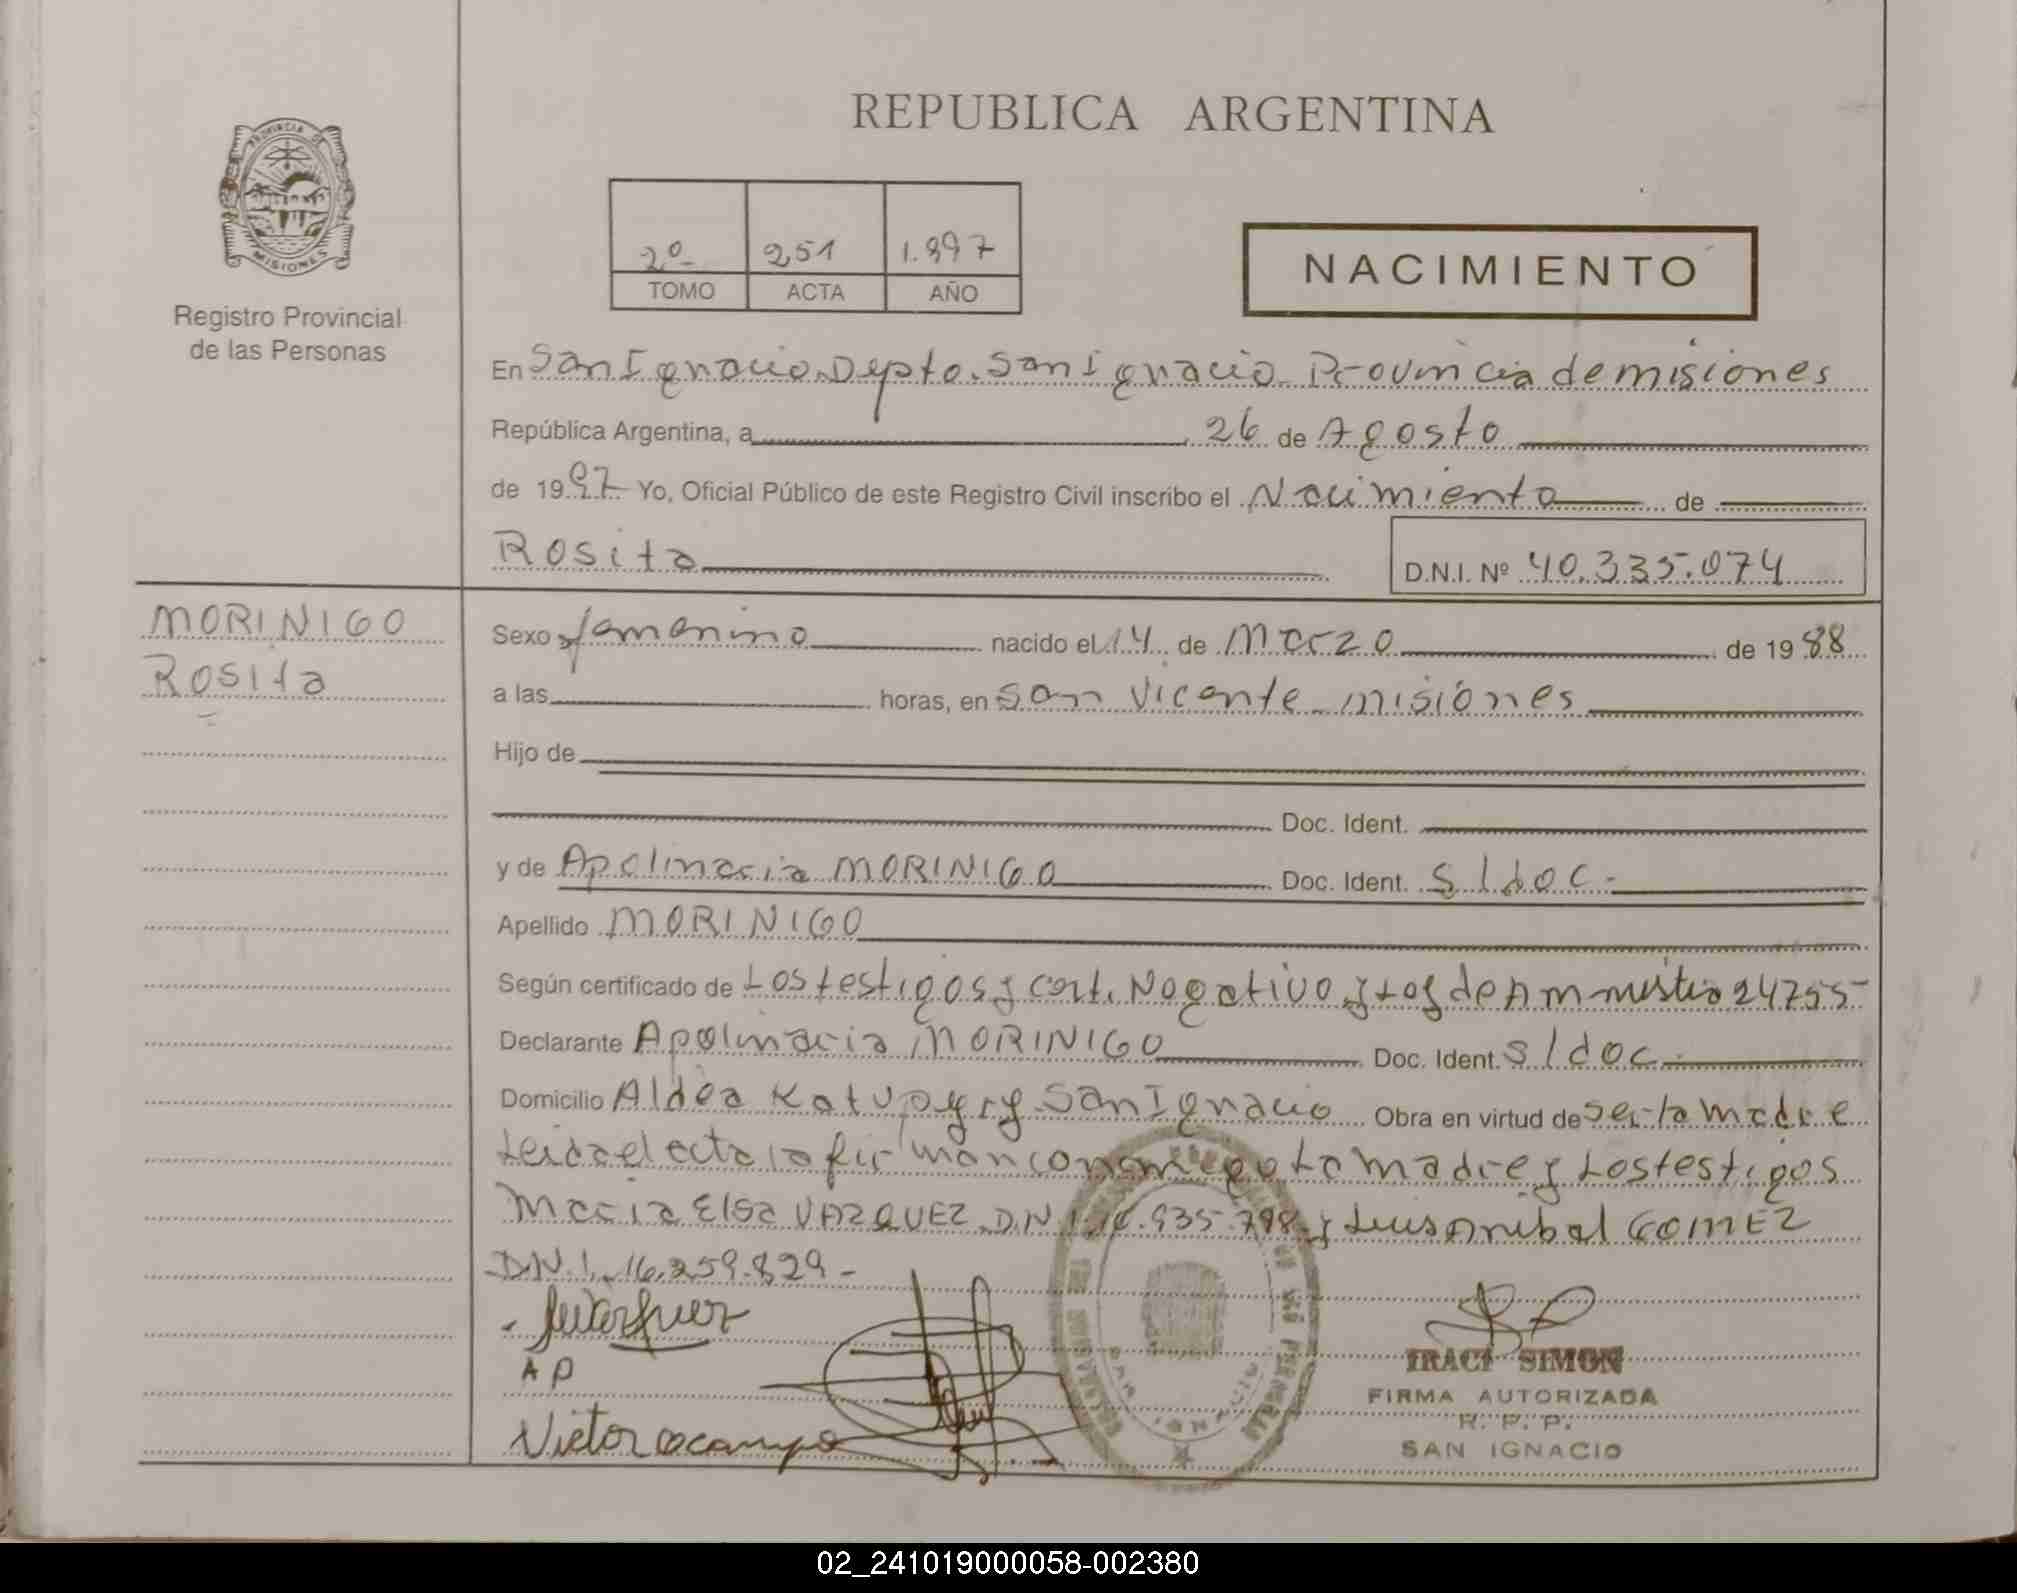 REPUBLICA ARGENTINA
PROVINCIA DE
MISIONES
Registro Provincial
de las Personas
2º 251 1.997
TOMO ACTA AÑO
NACIMIENTO
En San Ignacio Depto. San Ignacio Provincia de misiones
República Argentina, a 26 de Agosto
de 1997 Yo, Oficial Público de este Registro Civil inscribo el Nacimiento de
Rosita D.N.I. Nº 40.335.074
MORINIGO
Rosita
Sexo femenino nacido el 14 de Marzo de 1988
a las horas, en San Vicente misiones
Hijo de
Doc. Ident.
y de Apolinaria MORINIGO Doc. Ident. s/doc.
Apellido MORINIGO
Según certificado de Los testigos y cert. Negativo y Ley de Amnistia 24755-
Declarante Apolinaria MORINIGO Doc. Ident. s/doc.
Domicilio Aldea Katupyry San Ignacio Obra en virtud de ser la madre
Leida el acta la firman conmigo La madre y Los testigos
Maria Elsa VAZQUEZ D.N.I. 935.798 y Luis Anibal GOMEZ
D.N.I. 16.259.829-
A P
Victor Ocampo
IRACI SIMON
FIRMA AUTORIZADA
R. P. P.
SAN IGNACIO
02_241019000058-002380